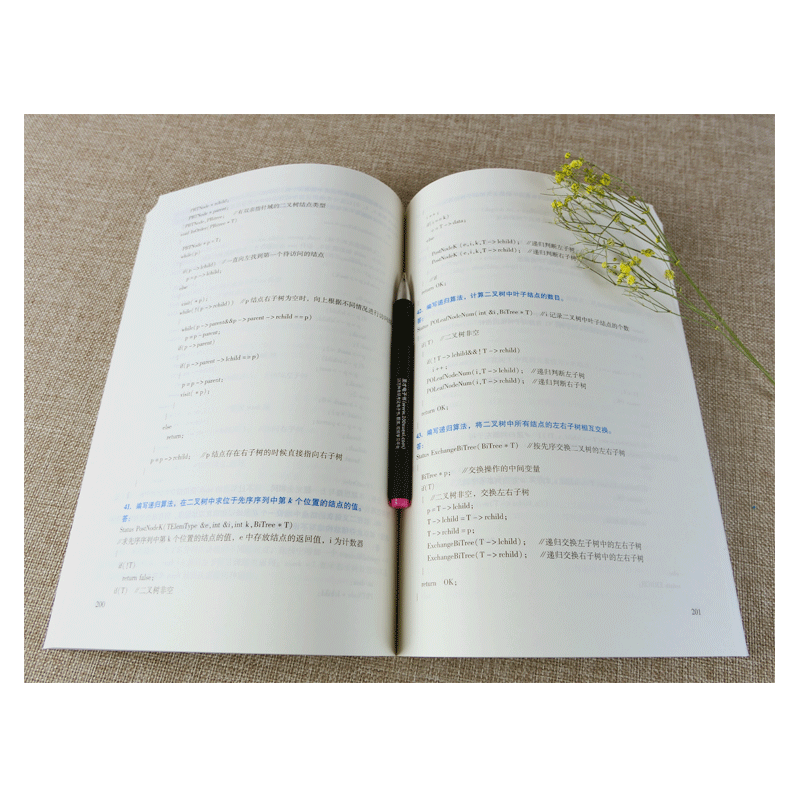 //有双亲指针域的二叉树结点类型
PBTNode * p = T;
while(p)
if(p -> lchild) //一直向左找到第一个待访问的结点
p = p -> lchild;
else
visit( * p);
while(!(p -> rchild)) //p 结点右子树为空时,向上根据不同情况进行
while(p -> parent&&p -> parent -> rchild == p)
p = p -> parent;
if(p -> parent)
if(p -> parent -> lchild == p)
p = p -> parent;
visit( * p);
else
return;
p = p -> rchild; //p 结点存在右子树的时候直接指向右子树
41. 编写递归算法,在二叉树中求位于先序序列中第 k 个位置的结点的值。
答:
Status PostNodeK( TElemType &e,int &i,int k,BiTree * T)
//求先序序列中第 k 个位置的结点的值, e 中存放结点的返回值, i 为计数器
if(!T)
return false;
if(T) //二叉树非空
200
i++;
if(i == k)
e = T -> data;
else
PostNodeK (e,i,k,T -> lchild); //递归判断左子树
PostNodeK (e,i,k,T -> rchild); //递归判断右子
return OK;
42. 编写递归算法,计算二叉树中叶子结点的数目。
答:
Status POLeafNodeNum(int &i,BiTree * T) //i 记录二叉树中叶子结点的个数
if(T) //二叉树非空
if(!T -> lchild&&!T -> rchild)
i++;
POLeafNodeNum(i,T -> lchild); //递归判断左子树
POLeafNodeNum(i,T -> rchild); //递归判断右子树
return OK;
43. 编写递归算法,将二叉树中所有结点的左右子树相互交换。
答:
Status ExchangeBiTree( BiTree * T) //按先序交换二叉树的左右子树
BiTree * p; //交换操作的中间变量
if(T)
//二叉树非空,交换左右子树
p = T -> lchild;
T -> lchild = T -> rchild;
T -> rchild = p;
ExchangeBiTree(T -> lchild); //递归交换左子树中的左右子树
ExchangeBiTree(T -> rchild); //递归交换右子树中的左右子树
return OK;
201